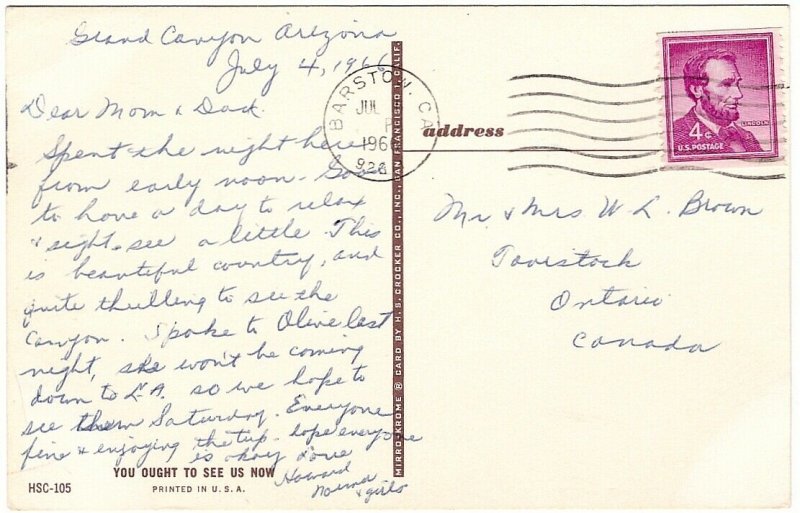 Grand Canyon Arizona
July 4, 1966
Dear Mom & Dad.
Spent the night here
from early noon. Good
to have a day to relax
& sight-see a little. This
is beautiful country, and
quite thrilling to see the
Canyon. Spoke to Olive last
night, she won't be coming
down to L.A. so we hope to
see them Saturday. Everyone
fine & enjoying the trip. hope everyone
is okay Love
Howard
Norma
& girls
YOU OUGHT TO SEE US NOW
HSC-105
PRINTED IN U. S. A.
MIRRO-KROME ® CARD BY H. S. CROCKER CO., INC., SAN FRANCISCO 1, CALIF.
BARSTOW, CA
JUL
P
196
926
address
4¢
LINCOLN
U.S. POSTAGE
Mr. & Mrs. W. L. Brown
Tavistock
Ontario
Canada